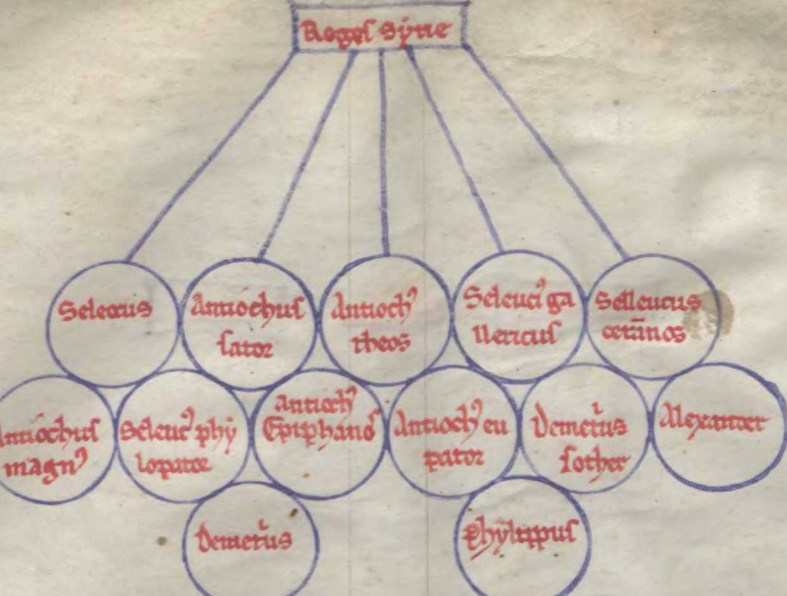 Reges Syrie
Seleucus
Antiochus
sator
Antioch᾽
theos
Seleuc᾽ ga
llericus
Selleucus
cerānos
Antiochus
magn᾽
Seleuc᾽ phy
lopator
Antioch᾽
Epiphanes
Antioch᾽ eu
pator
Demetrius
sother
Alexander
Demetrius
Phylippus